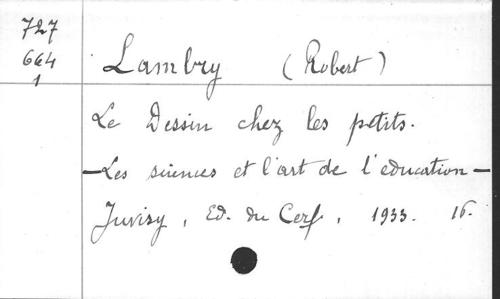 727
664
1
Lambry (Robert)
Le Dessin chez les petits.
-Les sciences et l'art de l'education-
Juvisy, Ed. du Cerf, 1933. 16.